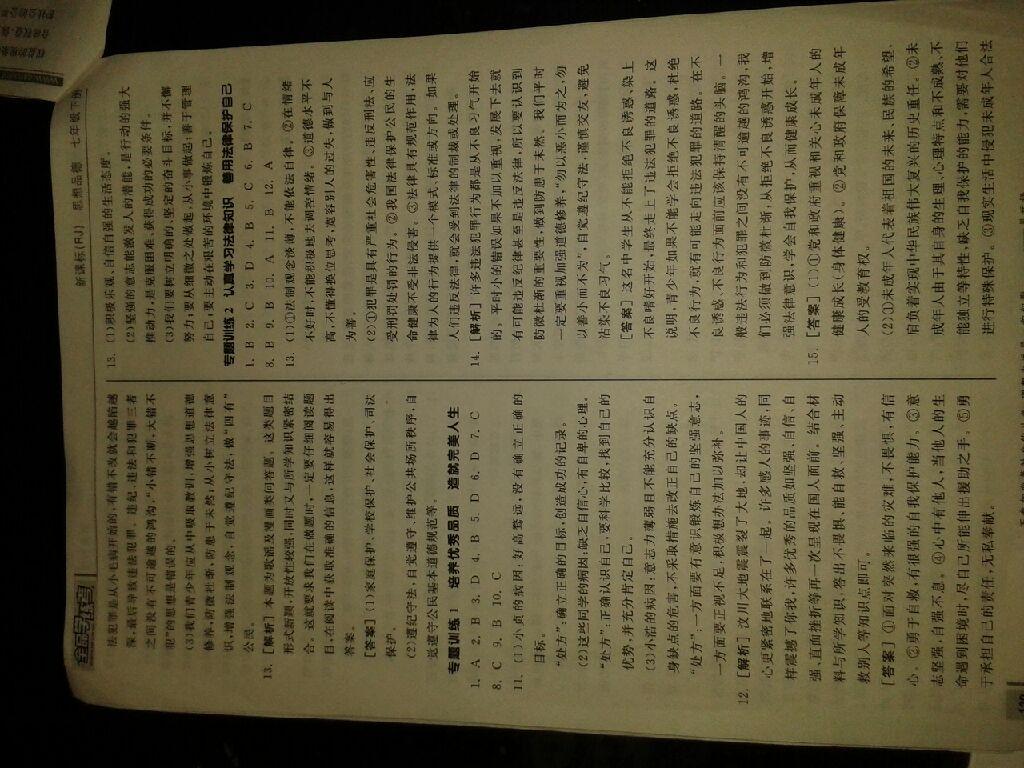 全品学练考
新课标(RJ) 思想品德 七年级下册
法犯罪是从小毛病开始的,有错不改就会越陷越
深,最后导致违法犯罪。违纪、违法和犯罪三者
之间没有不可逾越的鸿沟,“小错不断,大错不
犯”的思想是错误的。
(3)我们青少年应从中吸取教训,增强思想道德
修养,防微杜渐,防患于未然;从小树立法律意
识,增强法制观念,自觉遵纪守法,做“四有”
公民。
13. [解析] 本题为歌谣及漫画类问答题。这类题目
形式新颖,开放性较强,同时又与所学知识紧密结
合。这就要求我们在做题时,一定要仔细阅读题
目,在阅读中获取准确的信息,这样就容易得出
答案。
[答案] (1)家庭保护、学校保护、社会保护、司法
保护。
(2)遵纪守法,自觉遵守、维护公共场所秩序,自
觉遵守公民基本道德规范等。
专题训练 1 培养优秀品质 造就完美人生
1. A 2. B 3. D 4. B 5. D 6. D 7. C
8. C 9. B 10. C
11. (1)小贞的病因:好高骛远,没有确立正确的
目标。
“处方”:确立正确的目标,创造成功的记录。
(2)这些同学的病因:缺乏自信心,有自卑的心理。
“处方”:正确认识自己,要科学比较,找到自己的
优势,并充分肯定自己。
(3)小浩的病因:意志力薄弱且不能充分认识自
身缺点的危害,不采取措施去改正自己的缺点。
“处方”:一方面要有意识锻炼自己的坚强意志,
一方面要正视不足,积极想办法加以弥补。
12. [解析] 汶川大地震震裂了大地,却让中国人的
心更紧密地联系在了一起。许多感人的事迹,同
样震撼了你我,许多优秀的品质如坚强、自信、自
强、直面挫折等再一次呈现在国人面前。结合材
料与所学知识,答出不畏惧,能自救,坚强、主动
救别人等知识点即可。
[答案] ①面对突然来临的灾难,不畏惧,有信
心。②勇于自救,有很强的自我保护能力。③意
志坚强,自强不息。④心中有他人,当他人的生
命遇到困境时,尽自己所能伸出援助之手。⑤勇
于承担自己的责任,无私奉献。
13. (1)积极乐观、自信自强的生活态度。
(2)坚强的意志能激发人的潜能,是行动的强大
推动力,是克服困难、获得成功的必要条件。
(3)我们要树立明确的、坚定的奋斗目标,并不懈
努力;要从细微之处做起,从小事做起;善于管理
自己,要主动在艰苦的环境中锻炼自己。
专题训练 2 认真学习法律知识 善用法律保护自己
1. B 2. C 3. D 4. B 5. C 6. B 7. C
8. B 9. B 10. A 11. B 12. A
13. (1)①法制观念淡薄,不能依法自律。②在情绪
不好时,不能积极地去调控情绪。③道德水平不
高,不懂得换位思考,宽容别人的过失,做到与人
为善。
(2)①犯罪是具有严重社会危害性、违反刑法、应
受刑罚处罚的行为。②我国法律保护公民的生
命健康不受非法侵害。③法律具有规范作用,法
律为人的行为提供一个模式、标准或方向。如果
人们违反法律,就会受到法律的制裁或处理。
14. [解析] 许多违法犯罪行为都是从不良习气开始
的,平时小的错误如果不加以重视,发展下去就
有可能违反纪律甚至是违反法律,所以要认识到
防微杜渐的重要性,做到防患于未然。我们平时
一定要重视加强道德修养,“勿以恶小而为之,勿
以善小而不为”,自觉遵纪守法,谨慎交友,避免
沾染不良习气。
[答案] 这名中学生从不能拒绝不良诱惑、染上
不良嗜好开始,最终走上了违法犯罪的道路。这
说明,青少年如果不能学会拒绝不良诱惑,杜绝
不良行为,就有可能走向违法犯罪的道路。在不
良诱惑、不良行为面前应该保持清醒的头脑。一
般违法行为和犯罪之间没有不可逾越的鸿沟,我
们必须做到防微杜渐,从拒绝不良诱惑开始,增
强法律意识,学会自我保护,从而健康成长。
15. [答案] (1)①党和政府重视和关心未成年人的
健康成长(身体健康)。②党和政府保障未成年
人的受教育权。
(2)①未成年人代表着祖国的未来、民族的希望,
肩负着实现中华民族伟大复兴的历史重任。②未
成年人由于其自身的生理、心理特点和不成熟、不
能独立等特性,缺乏自我保护的能力,需要对他们
进行特殊保护。③现实生活中侵犯未成年人合法